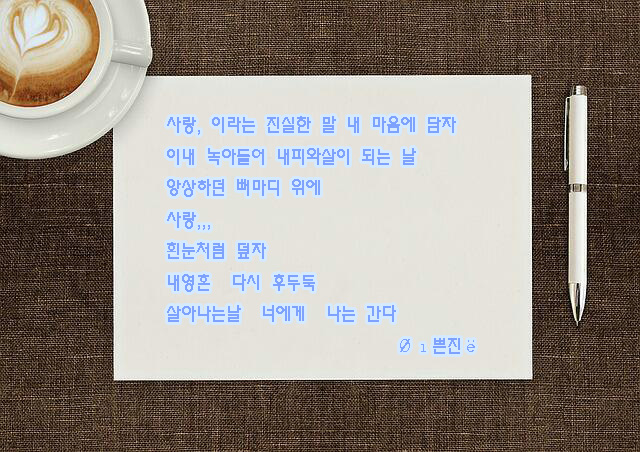 사랑, 이라는 진실한 말 내 마음에 담자
이내 녹아들어 내피와살이 되는 날
앙상하던 뼈마디 위에
사랑,,,
흰눈처럼 덮자
내영혼 다시 후두둑
살아나는날 너에게 나는 간다
Ø ı 쁜진 ë